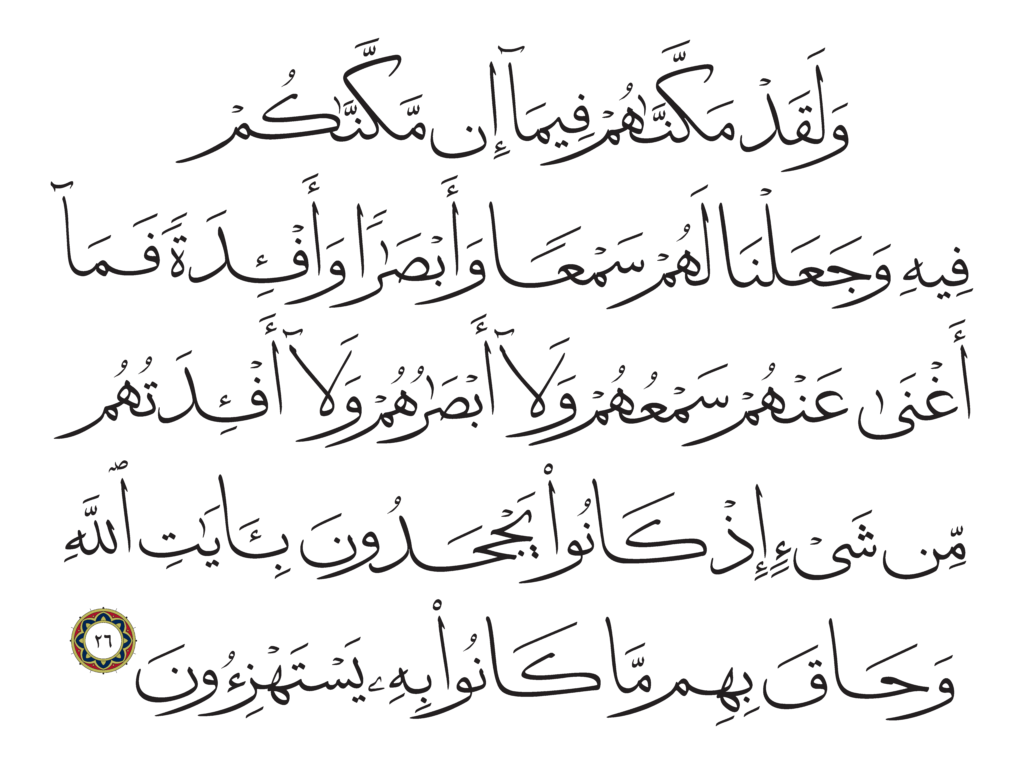 وَلَقَدْ مَكَّنَّٰهُمْ فِيمَآ إِن مَّكَّنَّٰكُمْ
فِيهِ وَجَعَلْنَا لَهُمْ سَمْعًا وَأَبْصَٰرًا وَأَفْـِٔدَةً فَمَآ
أَغْنَىٰ عَنْهُمْ سَمْعُهُمْ وَلَآ أَبْصَٰرُهُمْ وَلَآ أَفْـِٔدَتُهُم
مِّن شَىْءٍ إِذْ كَانُوا۟ يَجْحَدُونَ بِـَٔايَٰتِ ٱللَّهِ
وَحَاقَ بِهِم مَّا كَانُوا۟ بِهِۦ يَسْتَهْزِءُونَ ٢٦